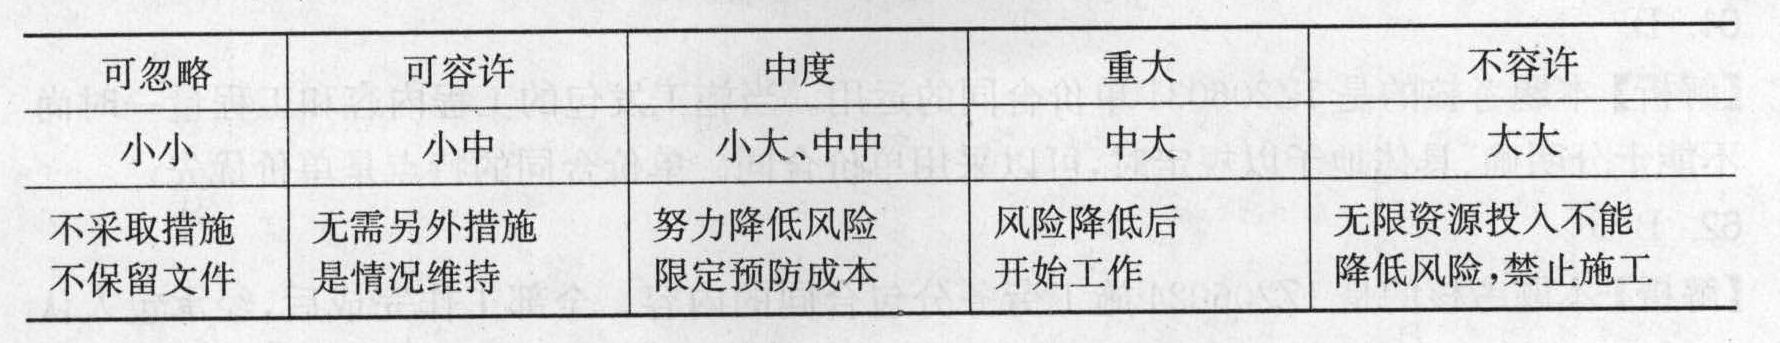 可忽略
可容许
中度
重大
不容许
小小
小中
小大、中中
中大
大大
不采取措施
不保留文件
无需另外措施
是情况维持
努力降低风险
限定预防成本
风险降低后
开始工作
无限资源投入不能
降低风险,禁止施工